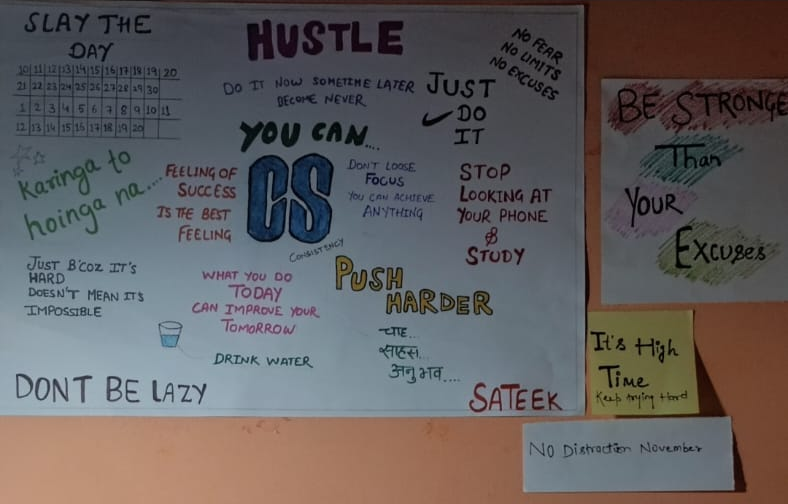 SLAY THE
DAY
10 11 12 13 14 15 16 17 18 19 20
21 22 23 24 25 26 27 28 29 30
1 2 3 4 5 6 7 8 9 10 11
12 13 14 15 16 17 18 19 20
Karinga to
hoinga na....
HUSTLE
DO IT NOW SOMETIME LATER
BECOME NEVER
YOU CAN....
NO FEAR
NO LIMITS
NO EXCUSES
JUST
DO
IT
FEELING OF
SUCCESS
IS THE BEST
FEELING
CS
CONSISTENCY
DON'T LOOSE
FOCUS
YOU CAN ACHIEVE
ANYTHING
STOP
LOOKING AT
YOUR PHONE
&
STUDY
JUST B'COZ IT'S
HARD
DOESN'T MEAN ITS
IMPOSSIBLE
WHAT YOU DO
TODAY
CAN IMPROVE YOUR
TOMORROW
PUSH
HARDER
DRINK WATER
चाह...
साहस...
अनुभव....
DONT BE LAZY
SATEEK
BE STRONGE
Than
YOUR
Excuses
It's High
Time
Keep trying Hard
NO Distraction November